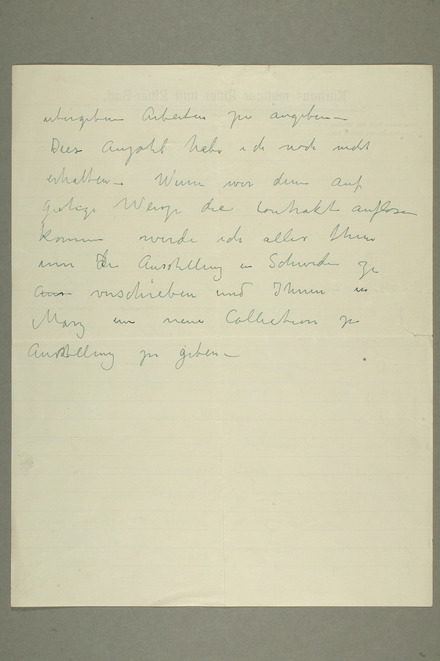 ubergeben Arbeiten zu angeben –
Dies Anzahl habe ich noch nicht
erhalten – Wenn wir dem auf
gutige Weise die Contrakt auflosen
konnen werde ich alles thun
um Die Ausstellung in Schweden zu
vorschieben und Ihnen in
Marz eine neue Collection zu
Ausstellung zu geben –